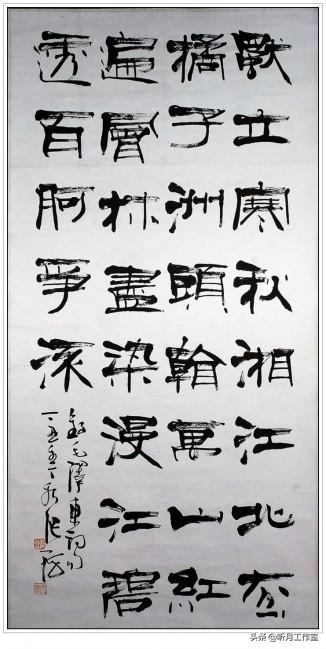 獨立寒秋湘江北去
橘子洲頭看萬山紅
遍層林盡染漫江碧
透百舸爭流
錄毛澤東詞句
張海
头条@昕月工作室